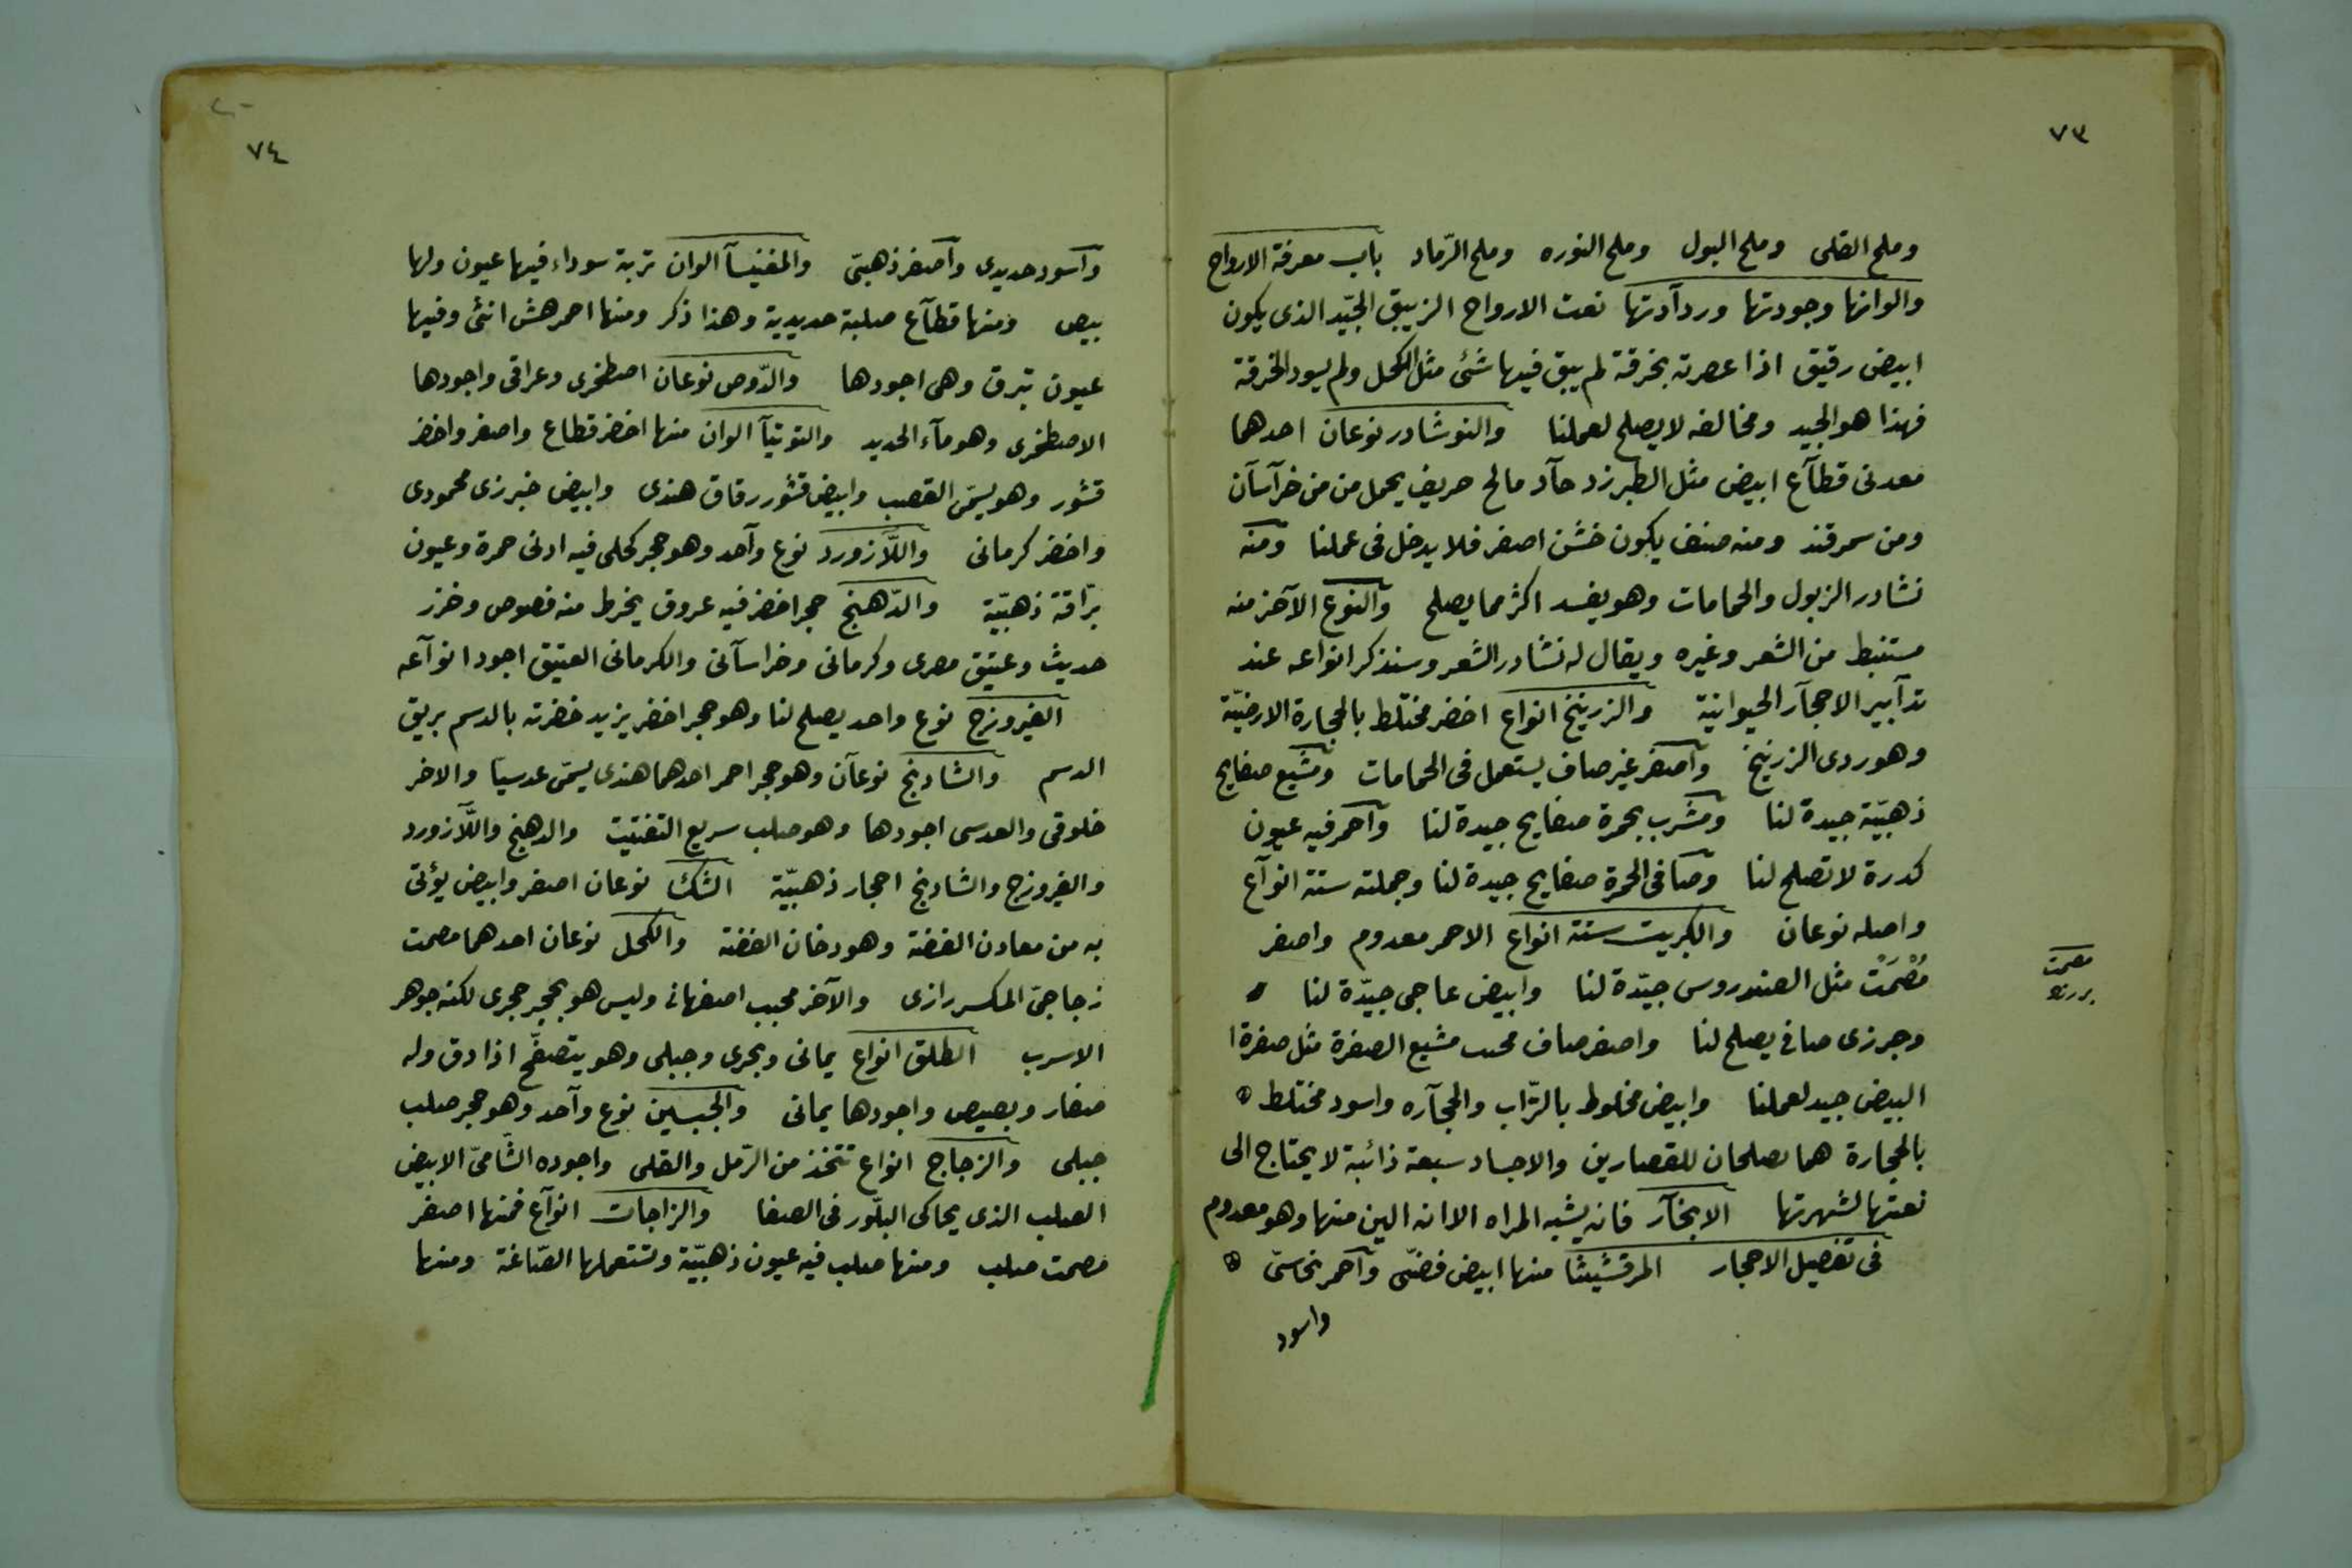 ٧٣
وملح القلى وملح البول وملح النوره وملح الرّماد باب معرفة الارواح
والوانها وجودتها وردآدتها نعت الارواح الزيبق الجيّد الذى يكون
ابيض رقيق اذا عصرته بخرقة لم يبق فيها شئ مثل الكحل ولم يسود الخرقة
فهذا هو الجيد ومخالفه لا يصلح لعملنا والنوشادر نوعان احدهما
معدنى قطآع ابيض مثل الطبرزد حآد مالح حريف يحمل من من خرآسآن
ومن سمرقند ومنه صنف يكون خشن اصفر فلا يدخل فى عملنا ومنه
نشادر الزبول والحمامات وهو يفسد اكثر مما يصلح والنوع الآخر منه
مستنبط من الشعر وغيره ويقال له نشادر الشعر وسنذكر انواعه عند
تدآبير الاحجآر الحيوانية والزرنيخ انواع اخضر مختلط بالحجارة الارضيّة
وهو ردى الزرنيخ وآصفر غير صاف يستعمل فى الحمامات ومشبع صفايح
ذهبيّة جيدة لنا ومشرب بحمرة صفايح جيدة لنا وآحمر فيه عيون
كدرة لا تصلح لنا وصافى الحمرة صفايح جيدة لنا وجملته ستة انوآع
واصله نوعان والكبريت ستة انواع الاحمر معدوم واصفر
مُصْمَتْ مثل الصندروس جيّدة لنا وابيض عاجى جيّدة لنا
وجرزى صافي يصلح لنا واصفر صاف محبب مشبع الصفرة مثل صفرة ا
البيض جيد لعملنا وابيض مخلوط بالتّراب والحجآره واسود مختلط
بالحجارة هما يصلحان للقصارين والاجساد سبعة ذائبة لا يحتاج الى
نعتها لشهرتها الابخآر فانه يشبه المراه الا انه الين منها وهو معدوم
فى تفصيل الاحجار المرقشيثا منها ابيض فضّى وآحمر نحاسىّ
واسود
مصمت
٧٤
وآسود حديدى وآصفر ذهبىّ والمغنيسآ الوان تربة سوداء فيها عيون ولها
بيص ومنها قطآع صلبة حديدية وهذا ذكر ومنها احمر هش انثى وفيها
عيون تبرق وهى اجودها والدّوص نوعان اصطخرى وعراقى واجودها
الاصطخرى وهو مآء الحديد والتوتيآ الوان منها اخضر قطاع واصفر واخضر
قشور وهو يسمّى القصب وابيض قشور رقاق هندى وابيض خبرزى محمودى
واخضر كرمانى واللّازورد نوع وآحد وهو حجر كحلى فيه ادنى حمرة وعيون
برّاقة ذهبيّة والدّهنج حجر اخضر فيه عروق يخرط منه فصوص وخرز
حديث وعتيق مصرى وكرمانى وخراسآنى والكرمانى العتيق اجود انوآعه
الفيروزج نوع واحد يصلح لنا وهو حجر اخضر يزيد خضرته بالدسم بريق
الدسم والشادنج نوعآن وهو حجر احمر احدهما هندى يسمّى عدسيّا والاخر
خلوقى والعدسى اجودها وهو صلب سريع التفتيت والدهنج واللّآزورد
والفيروزج والشادنج احجار ذهبيّة الشك نوعان اصفر وابيض يؤتى
به من معادن الفضة وهو دخان الفضة والكحل نوعان احدهما مصمت
زجاجىّ المكسر رازى والآخر محبب اصفهانى وليس هو بحجر حجرى لكنه جوهر
الاسرب الطلق انواع يمانى وبحرى وجبلى وهو يتصفّح اذا دق وله
صفار وبصيص واجودها يمانى والجبسين نوع وآحد وهو حجر صلب
جبلى والزجاج انواع تتخذ من الرّمل والقلى واجوده الشّامىّ الابيض
الصلب الذى يحاكى البلّور فى الصفا والزاجات انوآع فمنها اصفر
مصمت صلب ومنها صلب فيه عيون ذهبيّة وتستعملها الصّاغة ومنها